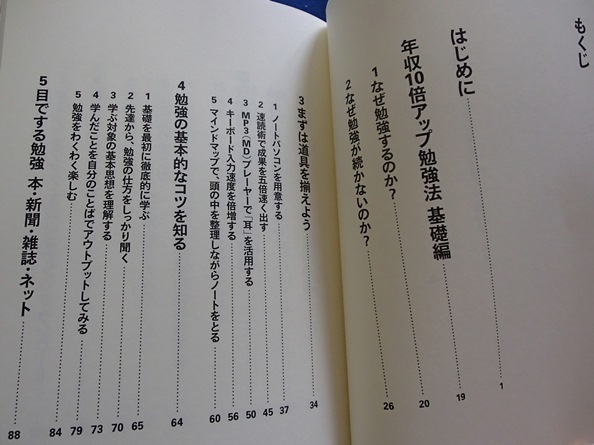 もくじ
はじめに 1
年収10倍アップ勉強法 基礎編 19
1 なぜ勉強するのか? 20
2 なぜ勉強が続かないのか? 26
3 まずは道具を揃えよう 34
1 ノートパソコンを用意する 37
2 速読術で成果を五倍速く出す 45
3 MP3(MD)プレーヤーで「耳」を活用する 50
4 キーボード入力速度を倍増する 56
5 マインドマップで、頭の中を整理しながらノートをとる 60
4 勉強の基本的なコツを知る 64
1 基礎を最初に徹底的に学ぶ 65
2 先達から、勉強の仕方をしっかり聞く 70
3 学ぶ対象の基本思想を理解する 73
4 学んだことを自分のことばでアウトプットしてみる 79
5 勉強をわくわく楽しむ 84
5 目でする勉強 本・新聞・雑誌・ネット 88